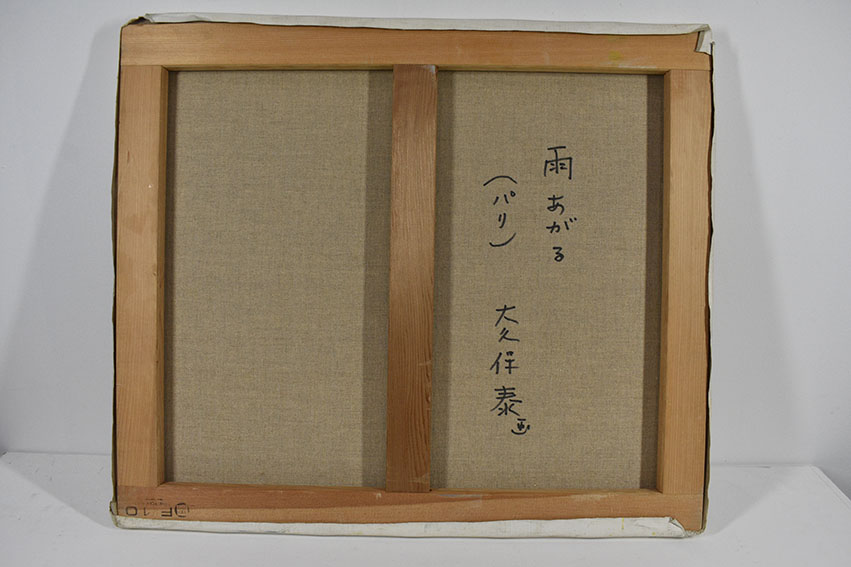 雨あがる
(パリ)
大久保泰画
F10